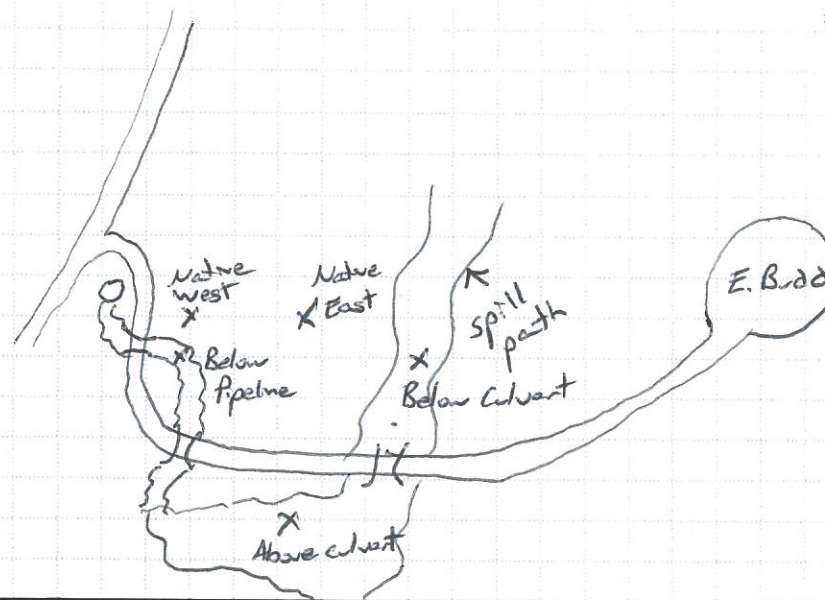 Native
west
Native
East
E. Budd
spill
path
Below
Pipeline
Below Culvert
Above culvert